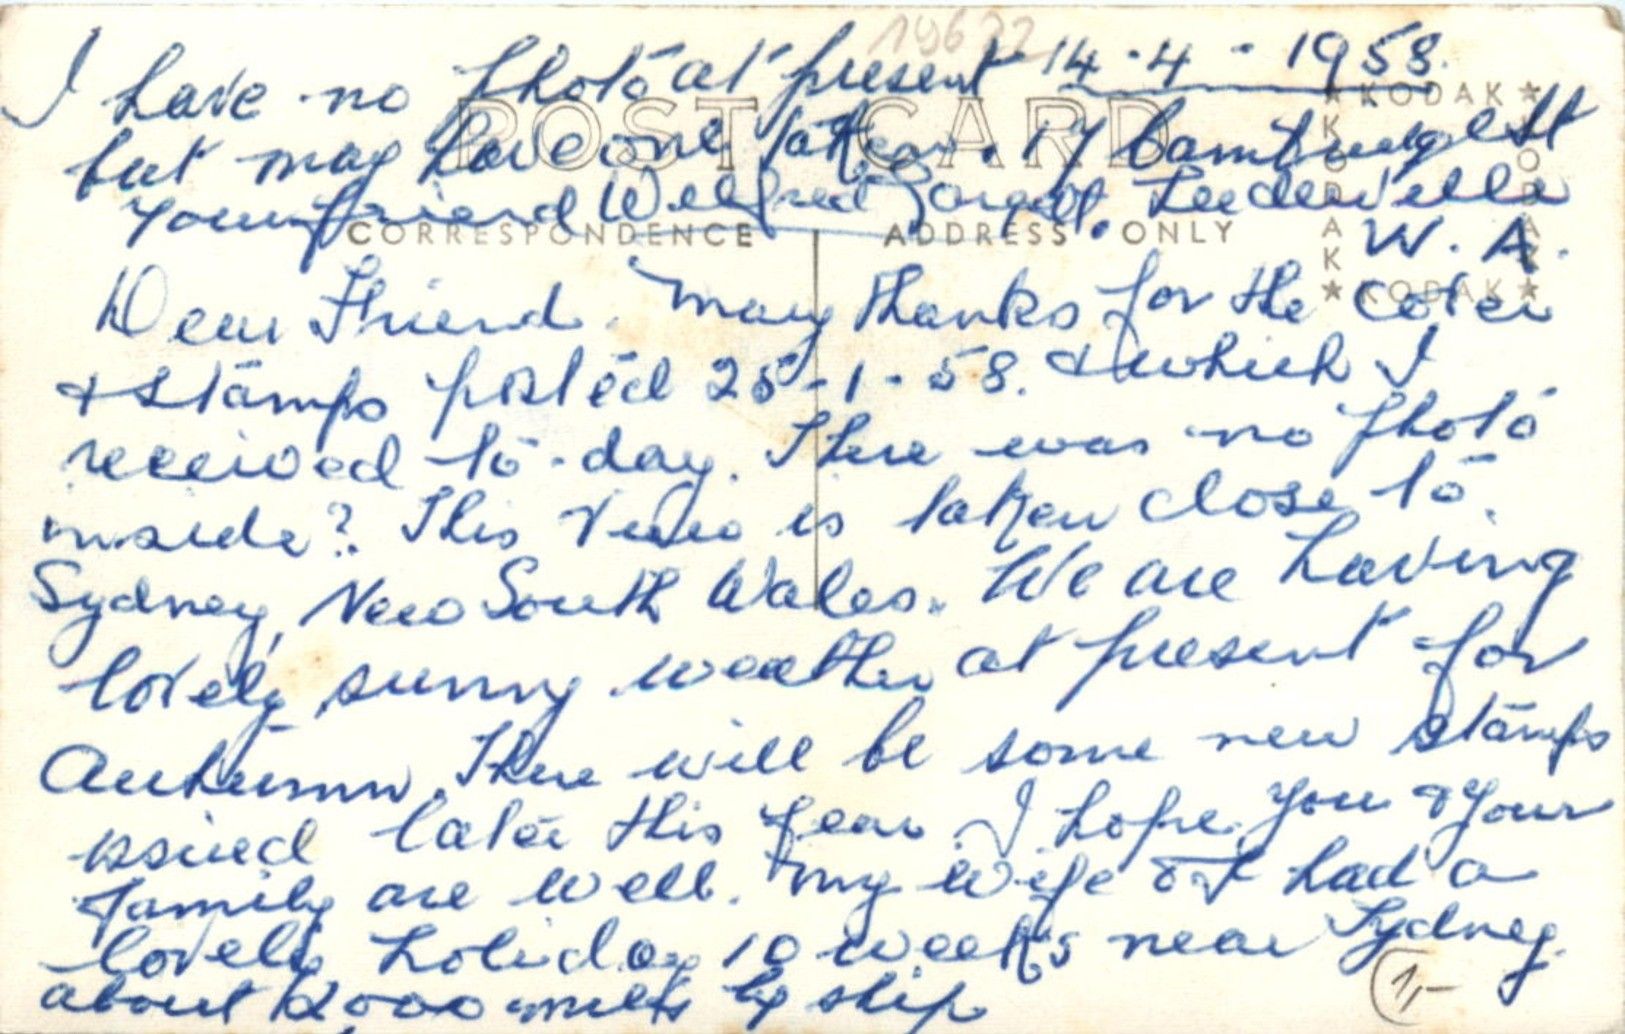 19622
I have no photo at present 14-4-1958.
POST CARD
but may have one taken. 17 St
Your friend Wilfred Leederville
CORRESPONDENCE ADDRESS ONLY
W. A.
★ KODAK ★
KODAK
KODAK
★ KODAK ★
Dear Friend. Many thanks for the cover
& stamps posted 25-1-58. & which I
received to-day. There was no photo
inside? This view is taken close to
Sydney, New South Wales. We are having
lovely sunny weather at present for
Autumn. There will be some new stamps
issued later this year. I hope you & your
family are well. My wife & I had a
lovely holiday 10 weeks near Sydney.
about 2000 miles by ship
1,-